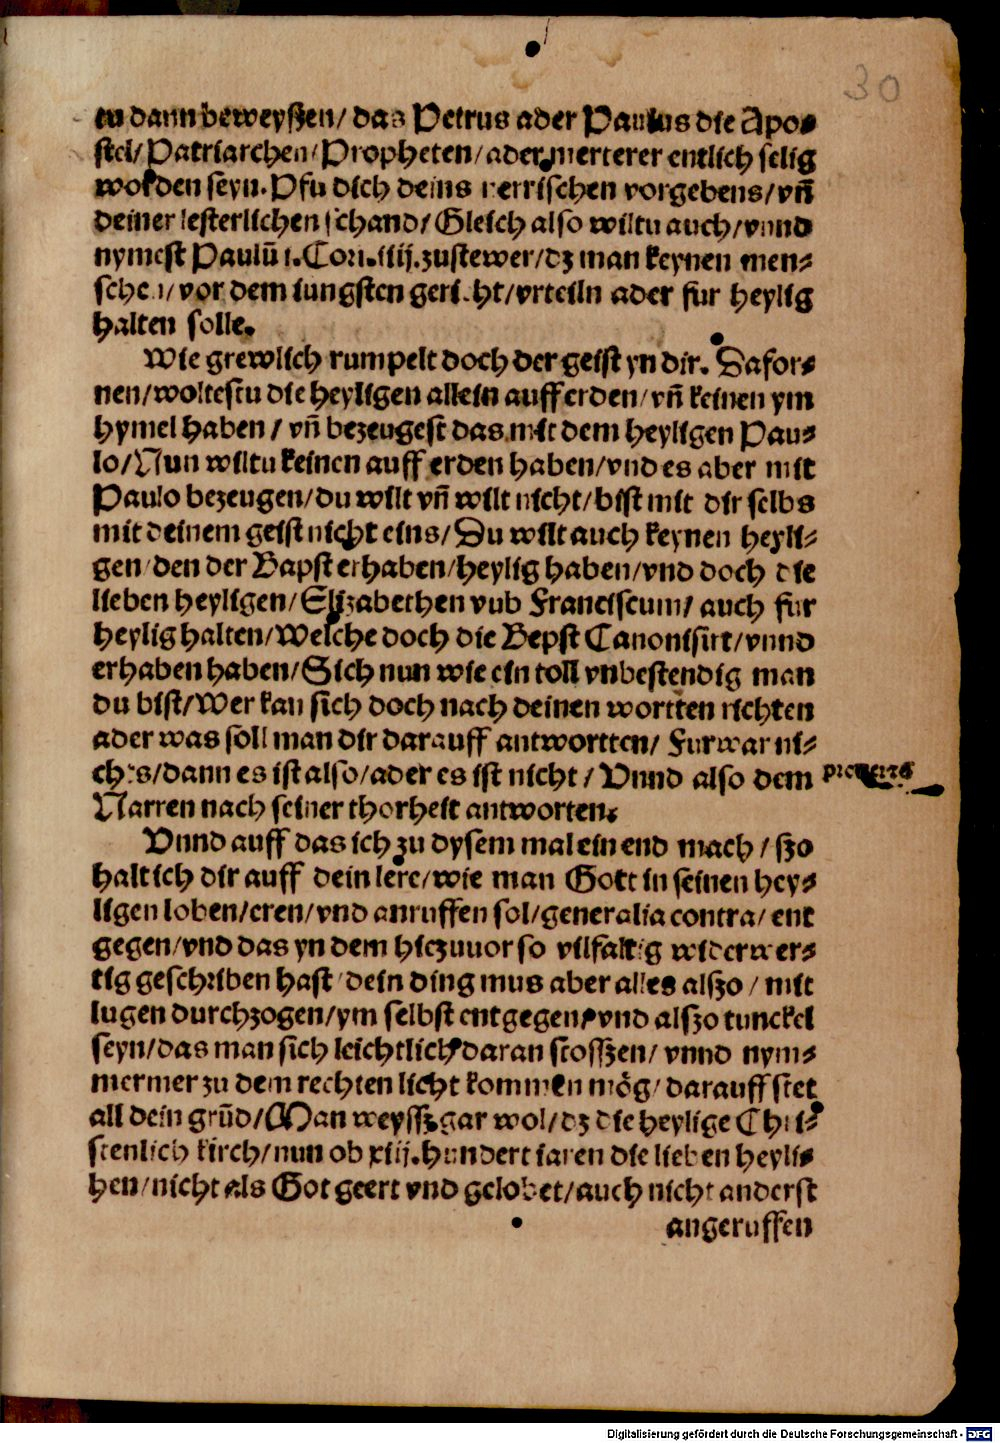 30
tu dann beweyszen/ das Petrus ader Paulus die Apo-
stel/ Patriarchen/ Propheten/ ader merterer entlich selig
worden seyn. Pfu dich deins nerrischen vorgebens/ vn̄
deiner lesterlichen schand/ Gleich also wiltu auch/ vnnd
nymest Paulū 1. Cori. iiij. zustewer/ dz man keynen men-
schen/ vor dem iungsten gericht/ vrteiln ader fur heylig
halten solle.
Wie grewlich rumpelt doch der geist yn dir. Dafor-
nen/ woltestu die heyligen allein auff erden/ vn̄ keinen ym
hymel haben/ vn̄ bezeugest das mit dem heyligen Pau-
lo/ Nun wiltu keinen auff erden haben/ vnd es aber mit
Paulo bezeugen/ du wilt vn̄ wilt nicht/ bist mit dir selbs
mit deinem geist nicht eins/ Du wilt auch keynen heyli-
gen/ den der Bapst erhaben/ heylig haben/ vnd doch die
lieben heyligen/ Elizabethen vub Franciscum/ auch fur
heylig halten/ Welche doch die Bepst Canonisirt/ vnnd
erhaben haben/ Sich nun wie ein toll vnbestendig man
du bist/ Wer kan sich doch nach deinen wortten richten
ader was soll man dir darauff antwortten/ Furwar ni-
chts/ dann es ist also/ ader es ist nicht/ Vnnd also dem
Narren nach seiner thorheit antworten.
Vnnd auff das ich zu dysem mal ein end mach/ szo
halt ich dir auff dein lere/ wie man Gott in seinen hey-
ligen loben/ eren/ vnd anruffen sol/ generalia contra/ ent
gegen/ vnd das yn dem hiezuuor so vilfaltig widerwer-
tig geschriben hast/ dein ding mus aber alles alszo/ mit
lugen durchzogen/ ym selbst entgegen/ vnd alszo tunckel
seyn/ das man sich leichtlich daran stosszen/ vnnd nym-
mermer zu dem rechten licht kommen mög/ darauff stet
all dein grūd/ Man weyssz gar wol/ dz die heylige Chri-
stenlich kirch/ nun ob xiij. hundert iaren die lieben heyli-
hen/ nicht als Got geert vnd gelobet/ auch nicht anderst
angeruffen
Digitalisierung gefördert durch die Deutsche Forschungsgemeinschaft - DFG